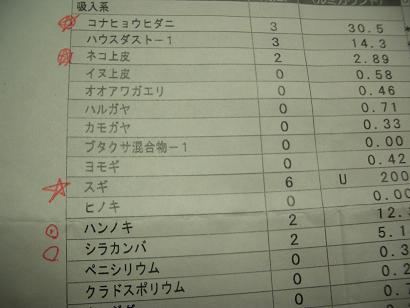 吸入系
コナヒョウヒダニ 3 30.5
ハウスダスト-1 3 14.3
ネコ上皮 2 2.89
イヌ上皮 0 0.58
オオアワガエリ 0 0.46
ハルガヤ 0 0.71
カモガヤ 0 0.33
ブタクサ混合物-1 0 0.00
ヨモギ 0 0.42
スギ 6 U 200
ヒノキ 0 0.00
ハンノキ 2 12.
シラカンバ 2 5.1
ペニシリウム 0 0.3
クラドスポリウム 0 0.2